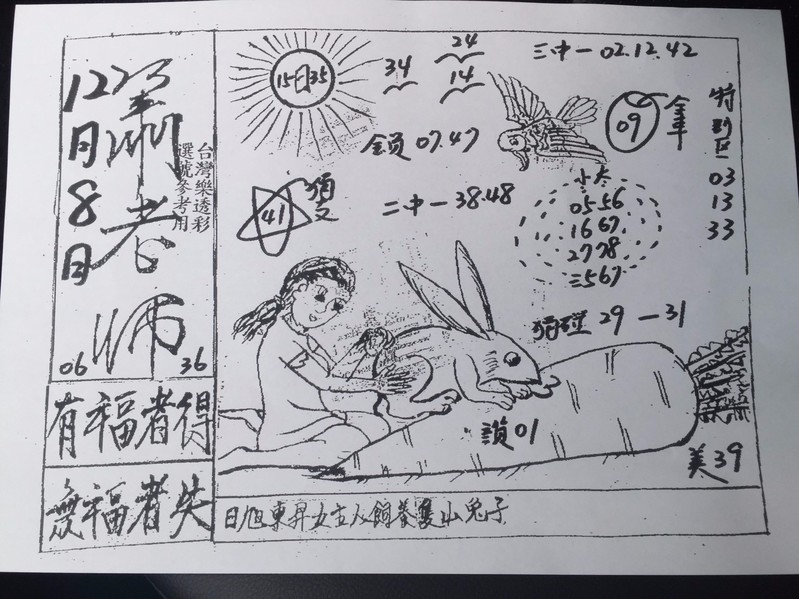 12月8日
蕭老師
台灣樂透彩
選號參考用
06 36
有福者得
無福者失
15日35
34
24
14
三中一02.12.42
07.47
09
特別区
03
13
33
41
二中一38.48
05 56
16 67
27 78
三567
29—31
01
美39
日旭東昇女主人飼養隻山兔子